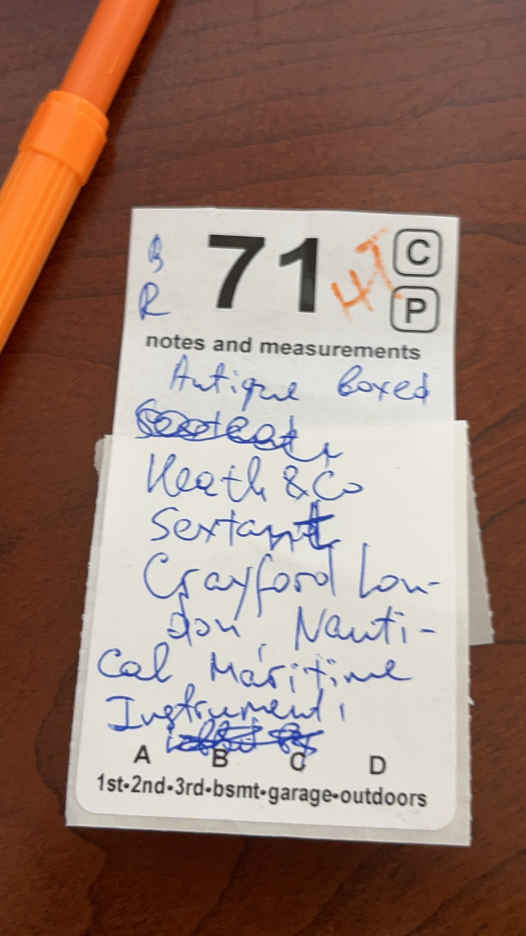 B 71 C
R P
notes and measurements
Antique Boxed
Heath & Co
Sextant
Crayford Lon-
don, Nauti-
cal Maritime
Instrument,
A B C D
1st•2nd•3rd•bsmt•garage•outdoors